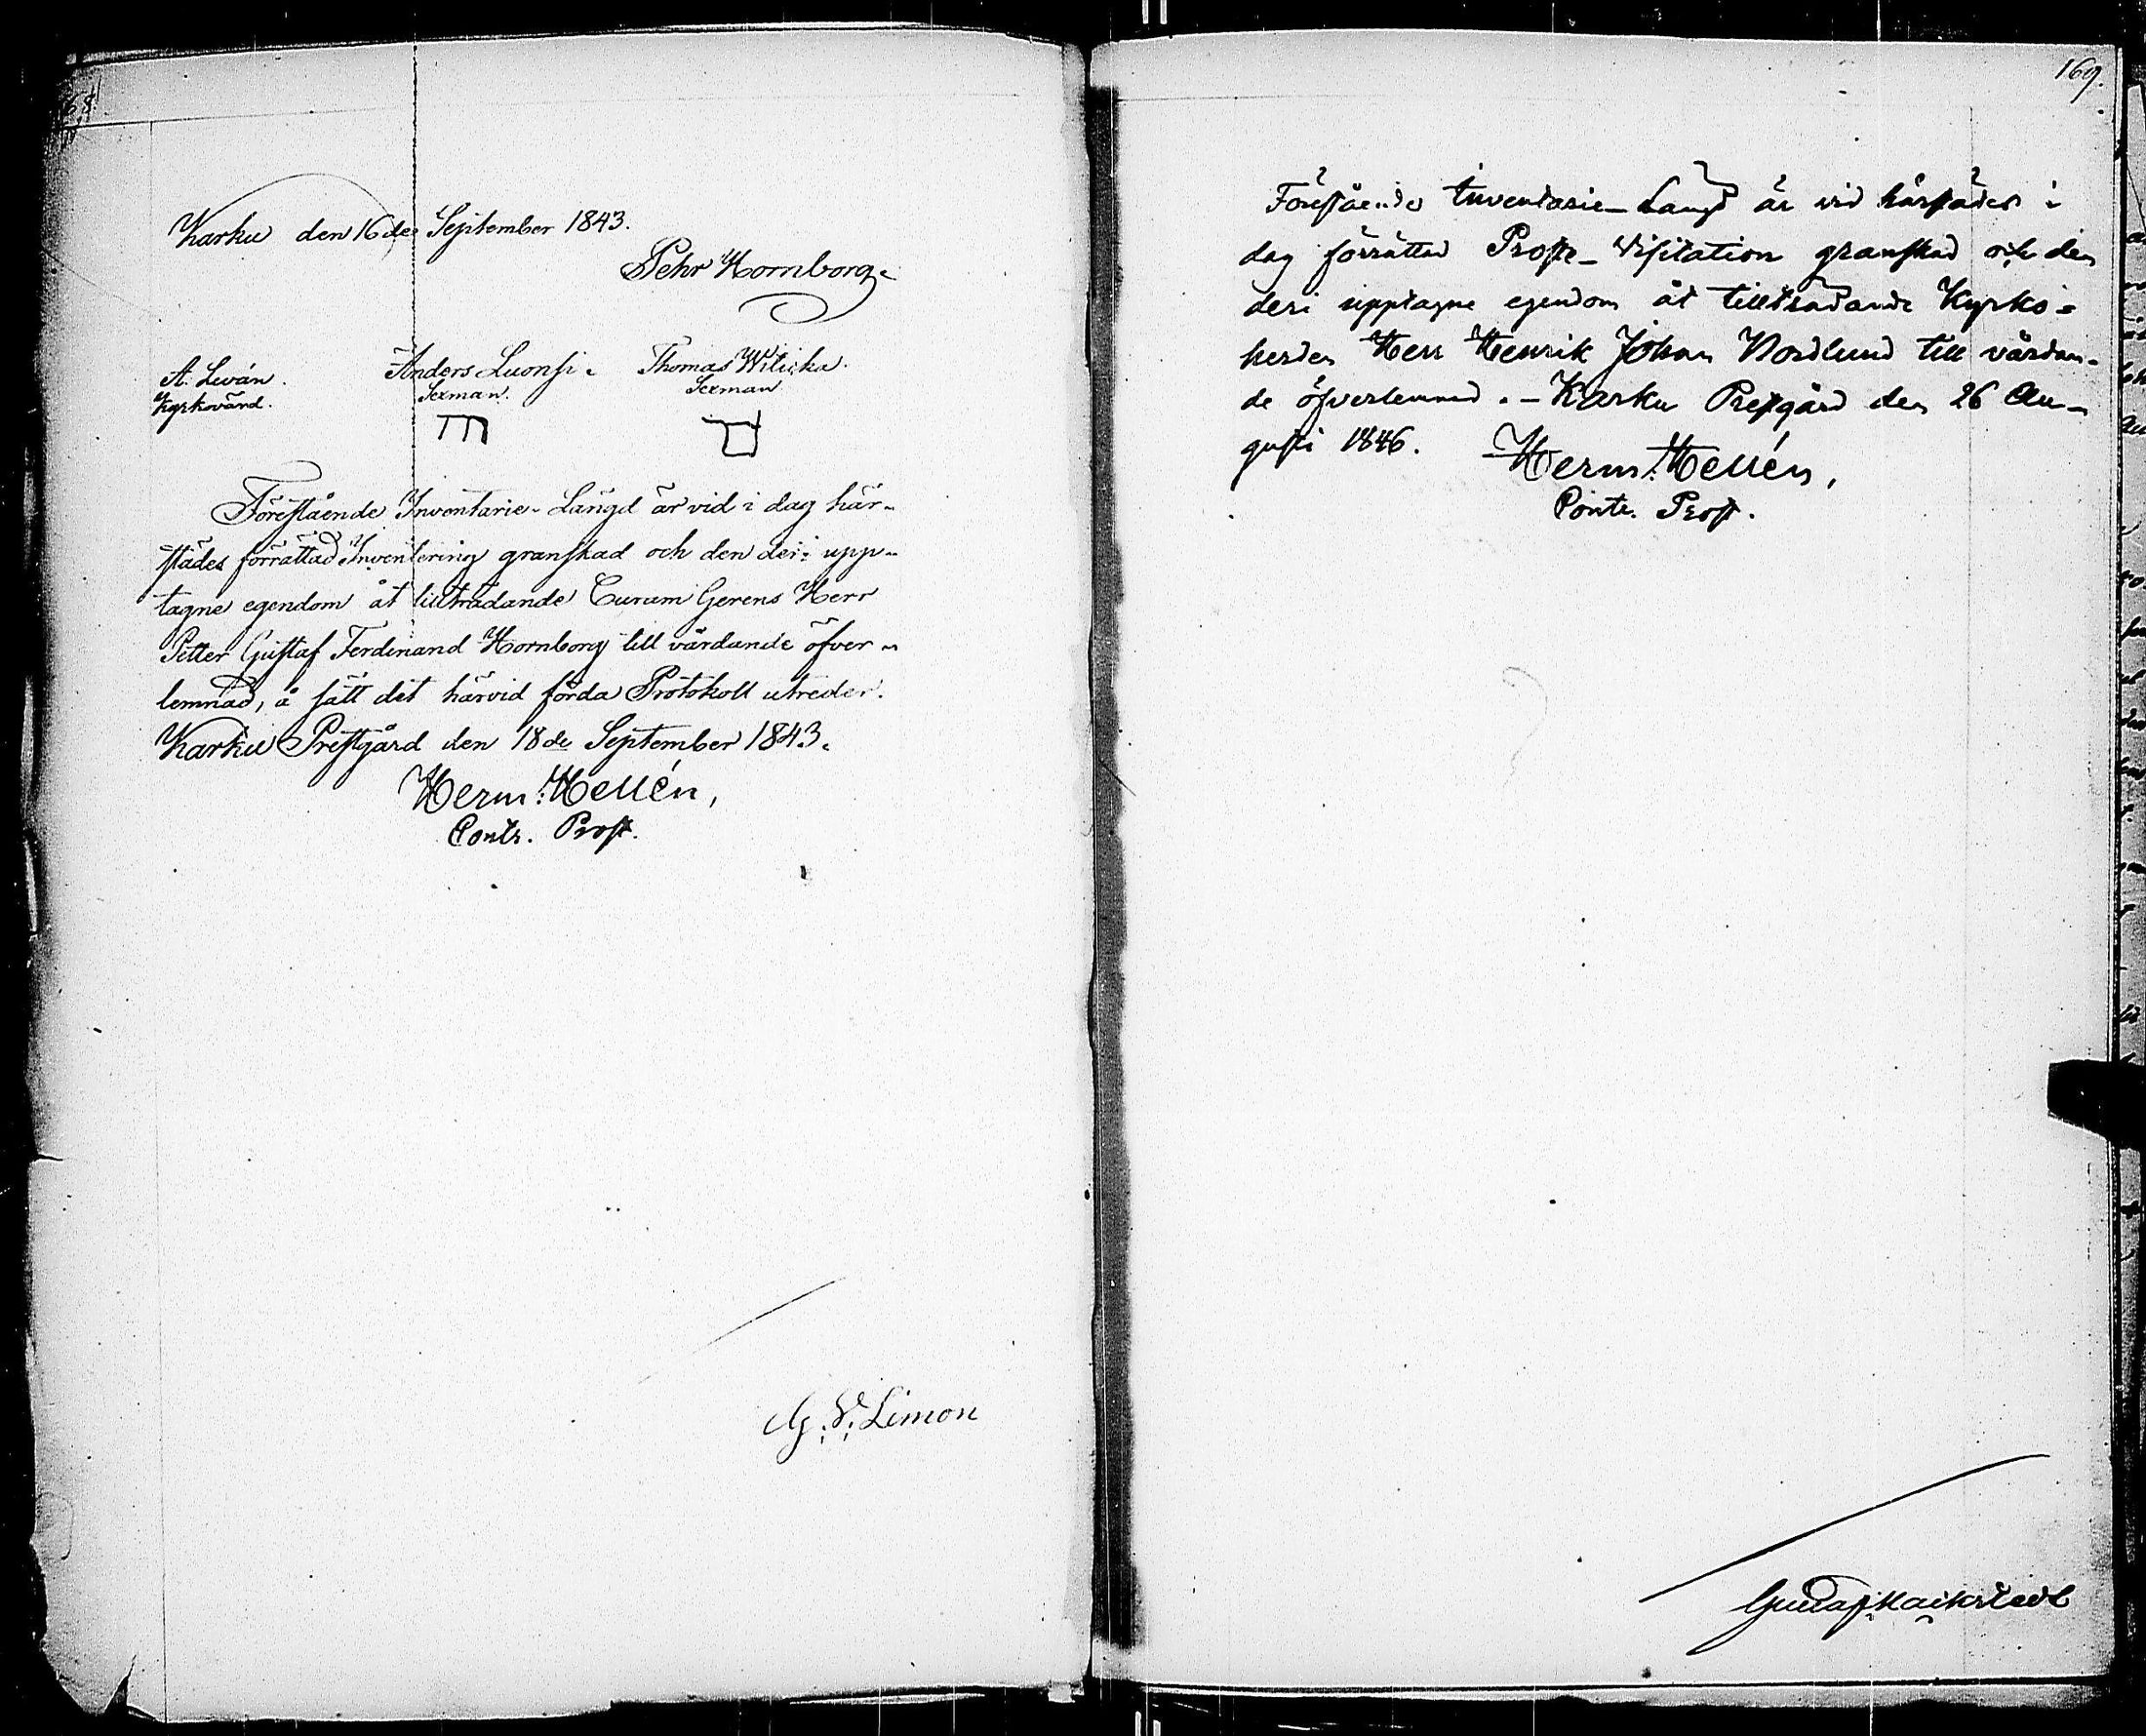 68.
Karku den 16de September 1843.
Pehr Hornborg.
A. Leván. Anders Luonsi. Thomas Wilicka.
Kyrkovärd. Sexman. Sexman
Förestående Inventarie-Längd är vid i dag här-
städes förrättad Inventering granskad och den deri upp-
tagne egendom åt tillträdande Curam Gerens Herr
Petter Gustaf Ferdinand Hornborg till vårdande öfver-
lemnad, å sätt det härvid förda Protokoll utreder.
Karku Prestgård den 18de September 1843.
Herm. Hellén,
Contr. Prost.
G. V. Limon
169.
Förestående Inventarie-Längd är vid härstädes i
dag förrättad Prosts-Visitation granskad och den
deri upptagne egendom åt tillträdande Kyrko-
herden Herr Henrik Johan Nordlund till vårdan-
de öfverlemnad. - Karku Prestgård den 26 Au-
gusti 1846.
Herm. Hellén,
Contr. Prost.
Gustaf